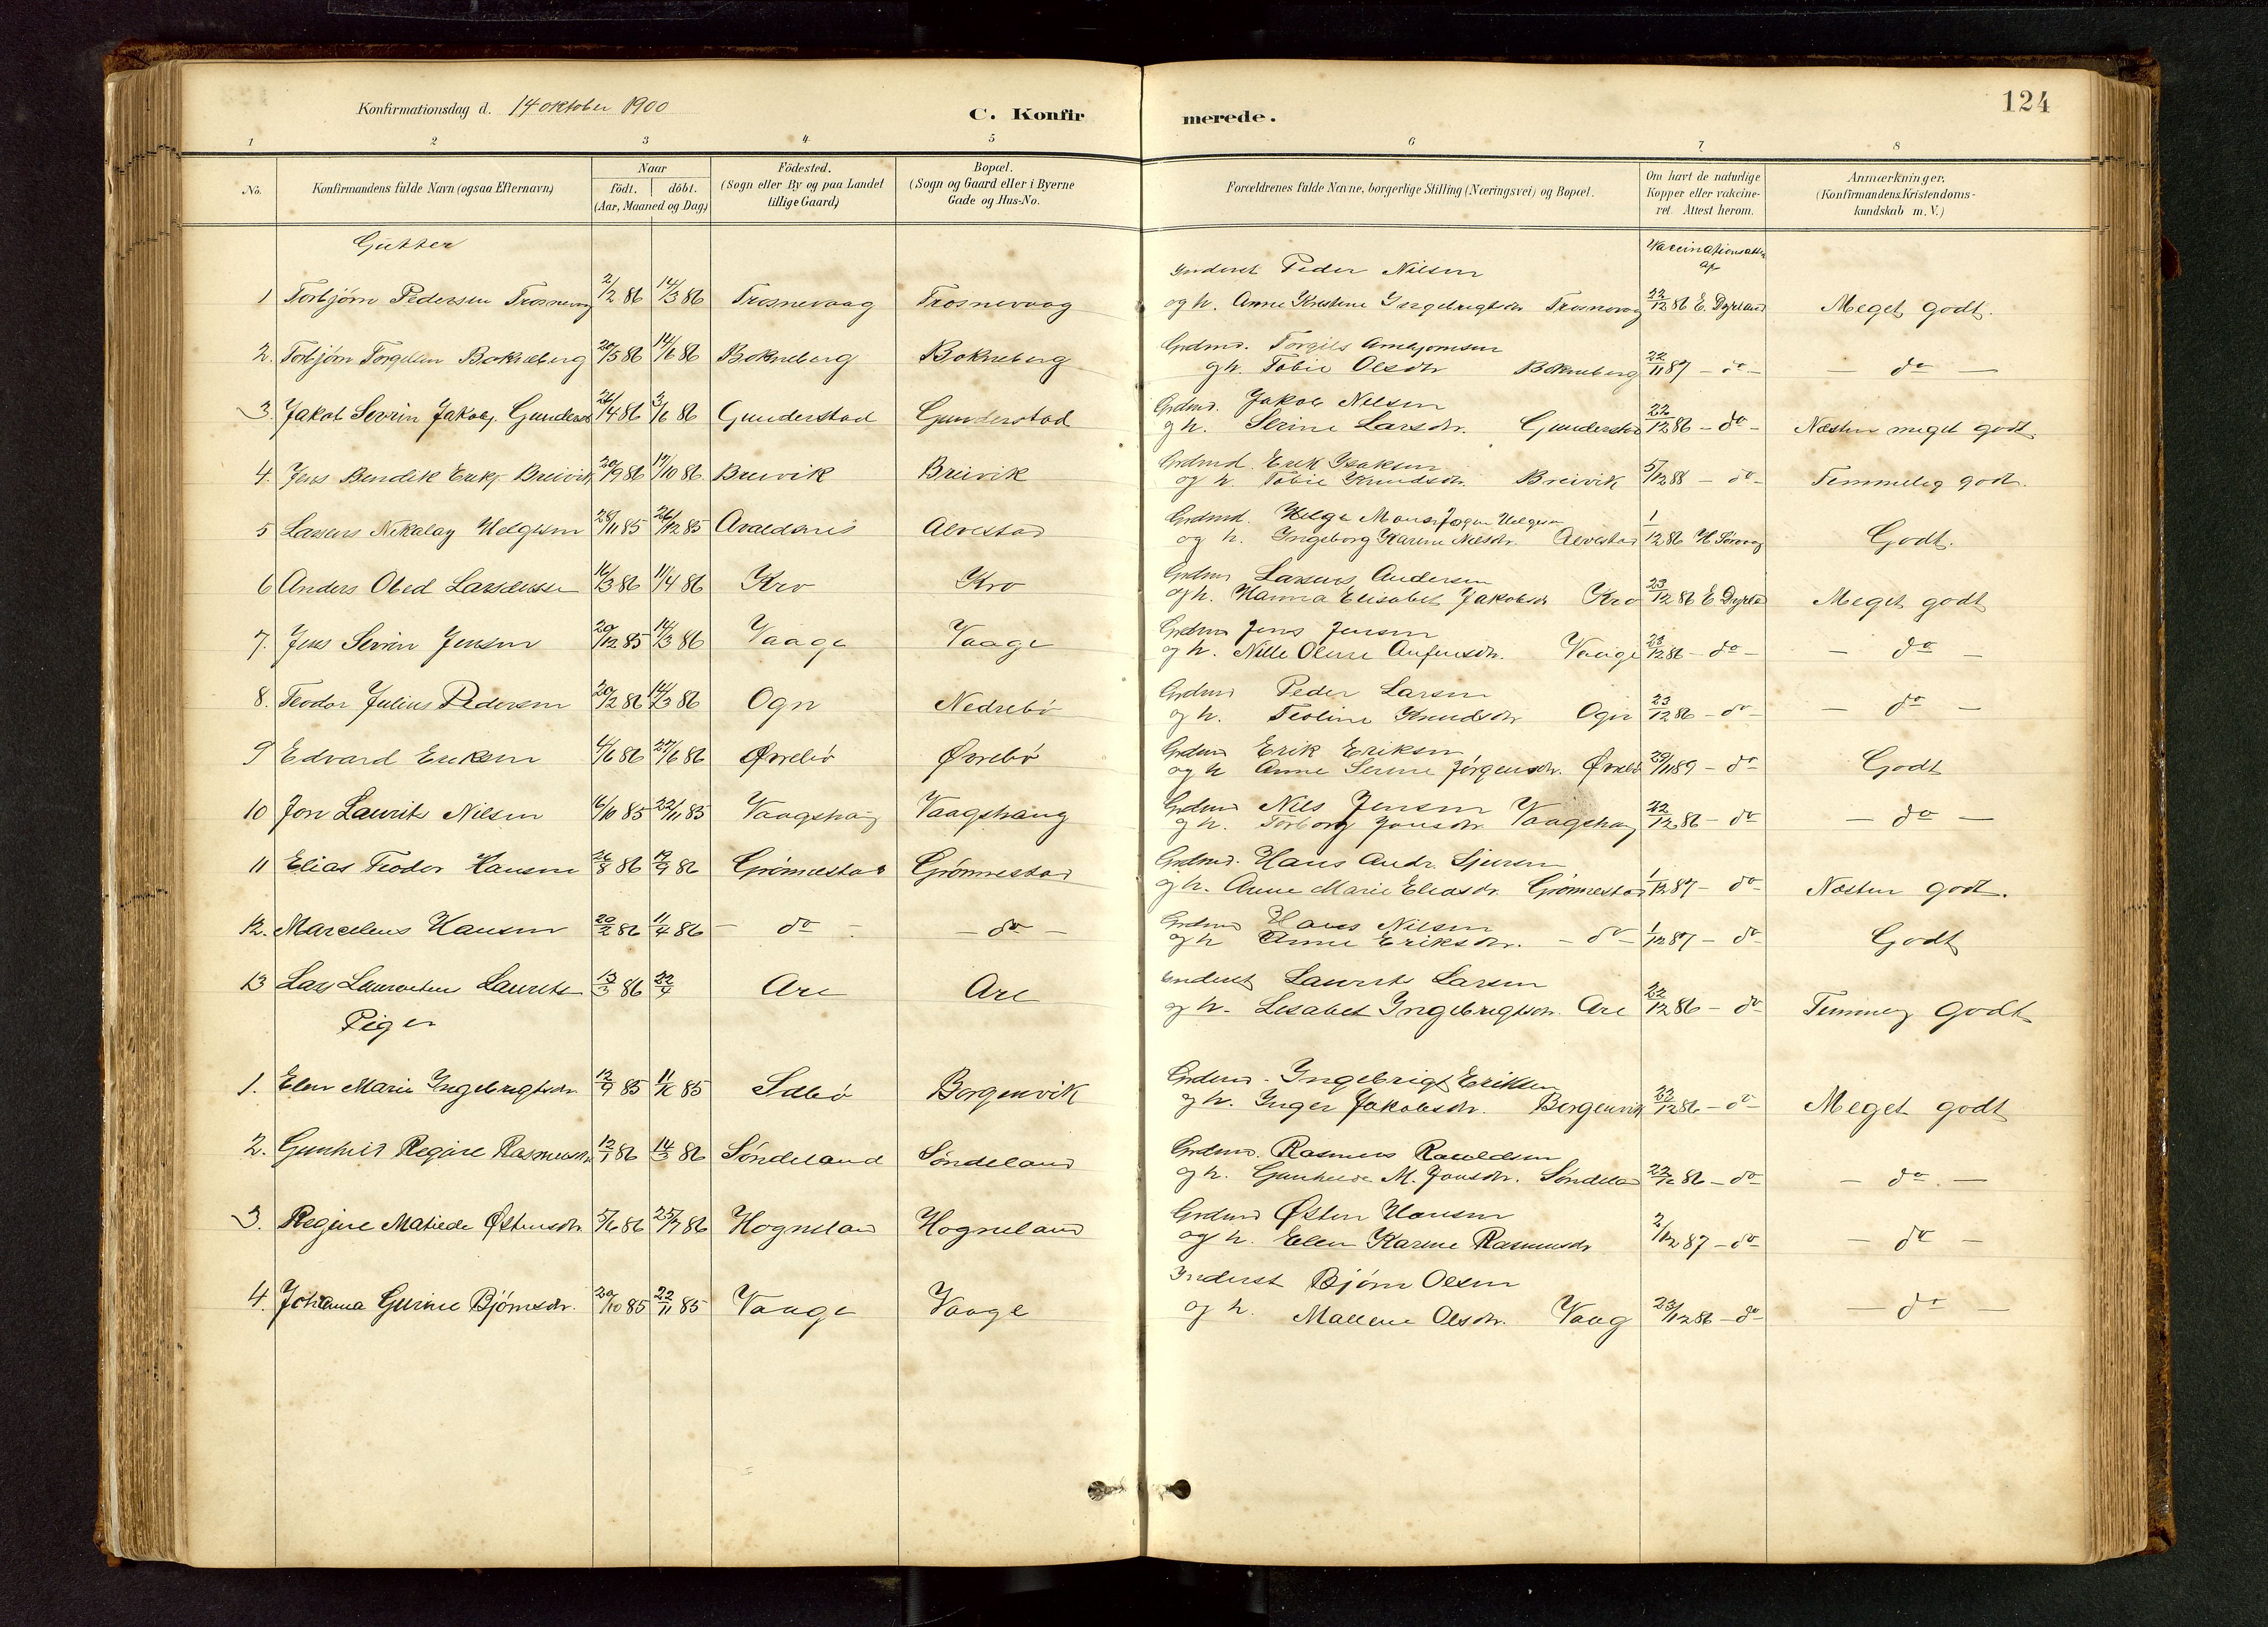 124
Konfirmationsdag d. 14 oktober 1900
C. Konfirmerede.
1 2 3 4 5 6 7 8
No.
Konfirmandens fulde Navn (ogsaa Efternavn)
Naar
födt. döbt.
(Aar, Maaned og Dag)
Födested.
(Sogn eller By og paa Landet
tillige Gaard)
Bopæl.
(Sogn og Gaard eller i Byerne
Gade og Hus-No.
Forældrenes fulde Navne, borgerlige Stilling (Næringsvei) og Bopæl.
Om havt de naturlige
Kopper eller vakcine-
ret. Attest herom.
Anmærkninger.
(Konfirmandens Kristendoms-
kundskab m. V.)
Gutter
Vaccinationsatte
af
Inderst Peder Nilsen
1 Torbjørn Pedersen Trosnevaag 2/2 86 14/3 86 Trosnevaag Trosnevaag og h. Anne Kristine Ingebrigtsdr Trosnevag 22/12 86 E. Dyrland Meget godt.
Grdmd. Torgils
2. Torbjørn Torgilsen Bokneberg 20/5 86 14/6 86 Bokneberg Bokneberg og h. Tobie Olsdr Bokneberg 22/11 87 - do - - do -
Grdmd. Jakob Nilsen
3. Jakob Sevrin Jakobs. Gunderst 26/4 86 3/6 86 Gunderstad Gunderstad og h. Serine Larsdr. Gunderstad 22/12 86 - do - Næsten meget godt
Grdmd. Erik Isaksen
4. Jens Bendik Eriks. Breivik 20/9 86 17/10 86 Breivik Breivik og h. Tobie Knudsdr. Breivik 5/12 88 - do - Temmelig godt.
Grdmd. Helge Mons
5 Lassens Nikolay Helgesen 28/11 85 26/12 85 Avaldsnes Alvestad og h. Ingeborg Karine Nilsdr. Alvestad 1/12 86 Godt.
Grdmd Lassens Andersen
6 Anders Obed Lassensen 16/3 86 11/4 86 Kro Kro og h. Hanna Elisabet Jakobsdr Kro 23/12 86 E Dyrland Meget godt
Grdmd Jens Jensen
7. Jens Sevrin Jensen 20/12 85 14/3 86 Vaage Vaage og h. Nille Oline Vaage 23/12 86 - do - - do -
Grdmd Peder Larsen
8. Teodor Julius Pedersen 20/2 86 14/3 86 Ogn Nedrebö og h. Teoline Knudsdr Ogn 23/12 86 - do - - do -
Grdmd Erik Eriksen
9 Edvard Eriksen 4/6 86 27/6 86 Øvrebö Øvrebö og h Anne Serine Jørgensdr. Øvrebö 29/11 89 - do Godt
Grdmd Nils Jensen
10 Jon Laurits Nilsen 16/10 85 22/11 85 Vaagshaug Vaagshaug og h. Torborg Jonsdr. Vaagshaug 22/12 86 - do - do -
Grdmd. Hans Andr. Sjursen
11 Elias Teodor Hansen 26/8 86 12/9 86 Grønnestad Grønnestad og h. Anne Marie Eliasdr. Grønnestad 1/12 87 - do - Næsten godt.
Grdmd Hans Nilsen
12. Marcelius Hansen 20/2 86 11/4 86 - do - - do - og h Anne Eriksdr. - do - 1/12 87 - do Godt
Inderst Laurits Larsen
13 Lars Laurits 13/3 86 22/4 Are Are og h. Lisabet Ingebrigtsdr. Are 22/12 86 - do Temmelig godt
Piger
Grdmd. Ingebrigt Eriksen
1. Elen Marie Ingebrigtsdr 12/9 85 11/10 85 Selbö Borgenvik og h. Inger Jakobsdr. Borgenvik 22/12 86 - do - Meget godt
Grdmd. Rasmus
2. Gunhild Regine Rasmusdr 12/1 86 14/3 86 Søndeland Søndeland og h. Gunhilde M. Jonsdr. Søndeland 22/12 86 - do - do -
Grdmd Østen Hansen
3. Regine Matilde Østensdr. 5/6 86 25/7 86 Hogneland Hogneland og h. Elen Karine Rasmusdr 2/12 87 - do - do -
Inderst Bjørn Olsen
4. Johanna Gurine Bjørnsdr. 20/10 85 22/11 85 Vaage Vaage og h. Mallene Olsdr. Vaag 23/12 86 - do - do -